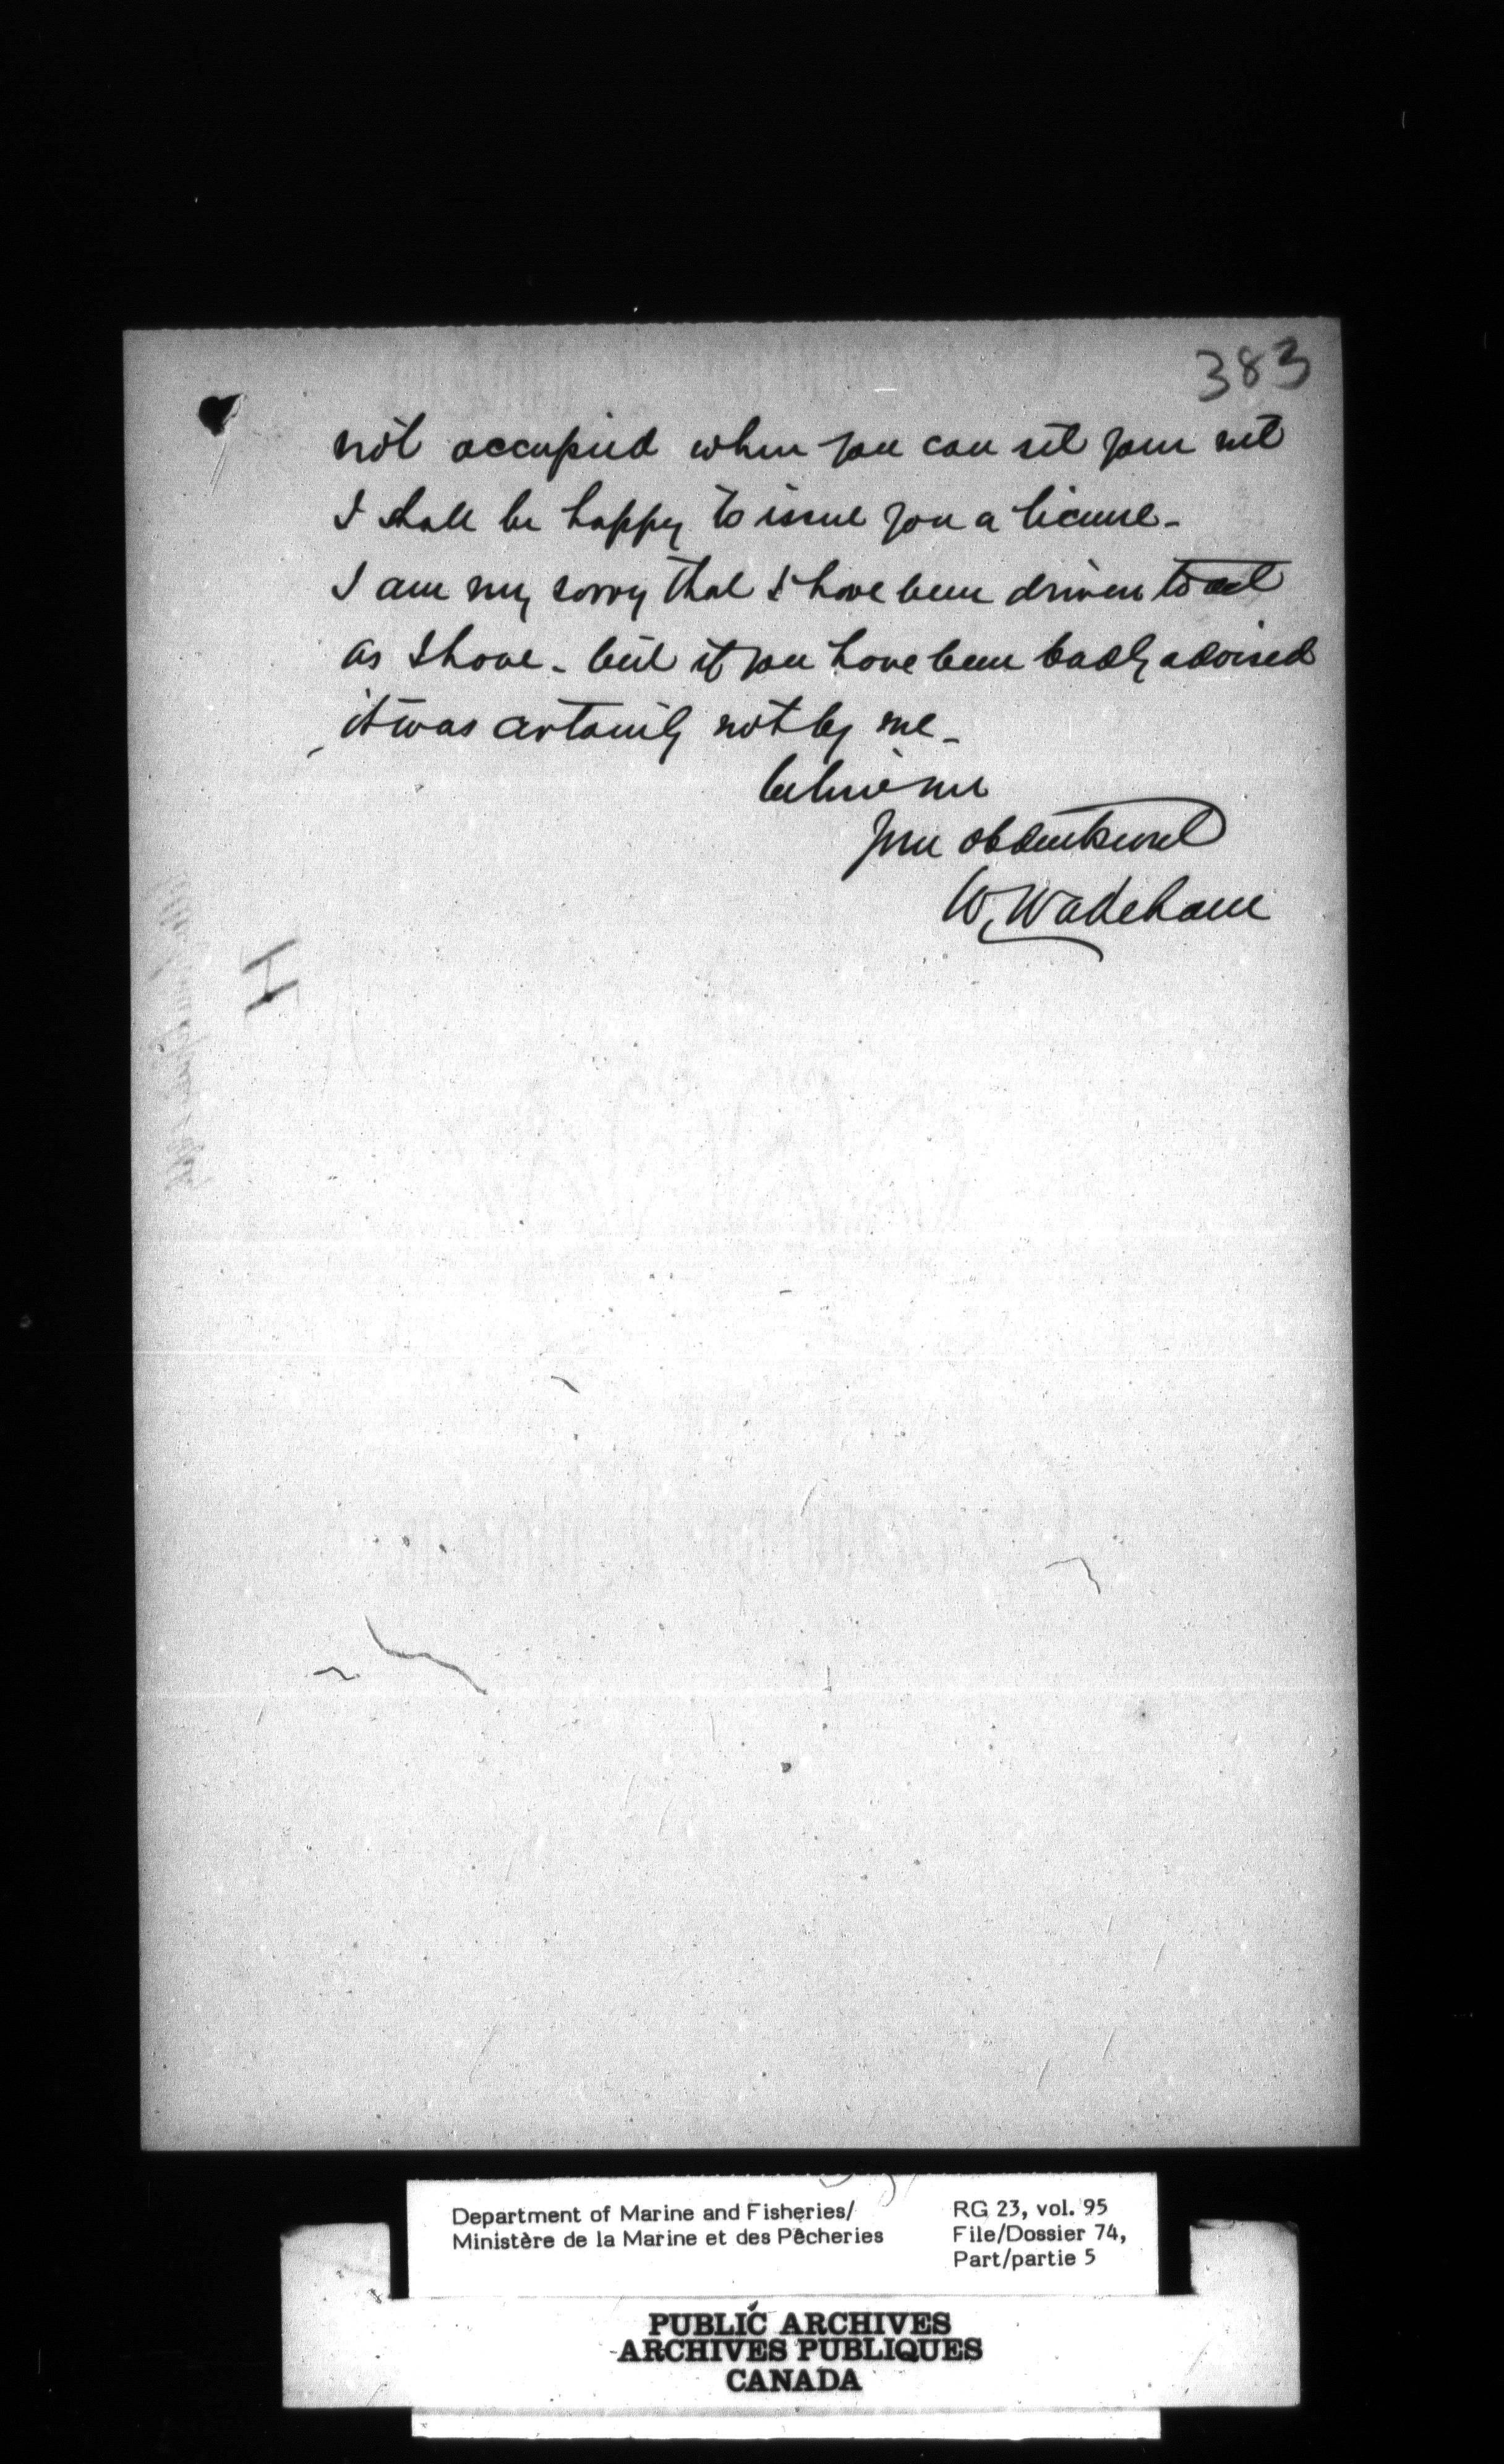 383
not occupied where you can set your net
I shall be happy to issue you a license -
I am very sorry that I have been driven to act
as I have - but if you have been badly advised
it was certainly not by me -
believe me
your obdent servt
W. Wakeham
H
Department of Marine and Fisheries/
Ministère de la Marine et des Pêcheries
RG 23, vol. 95
File/Dossier 74,
Part/partie 5
PUBLIC ARCHIVES
ARCHIVES PUBLIQUES
CANADA